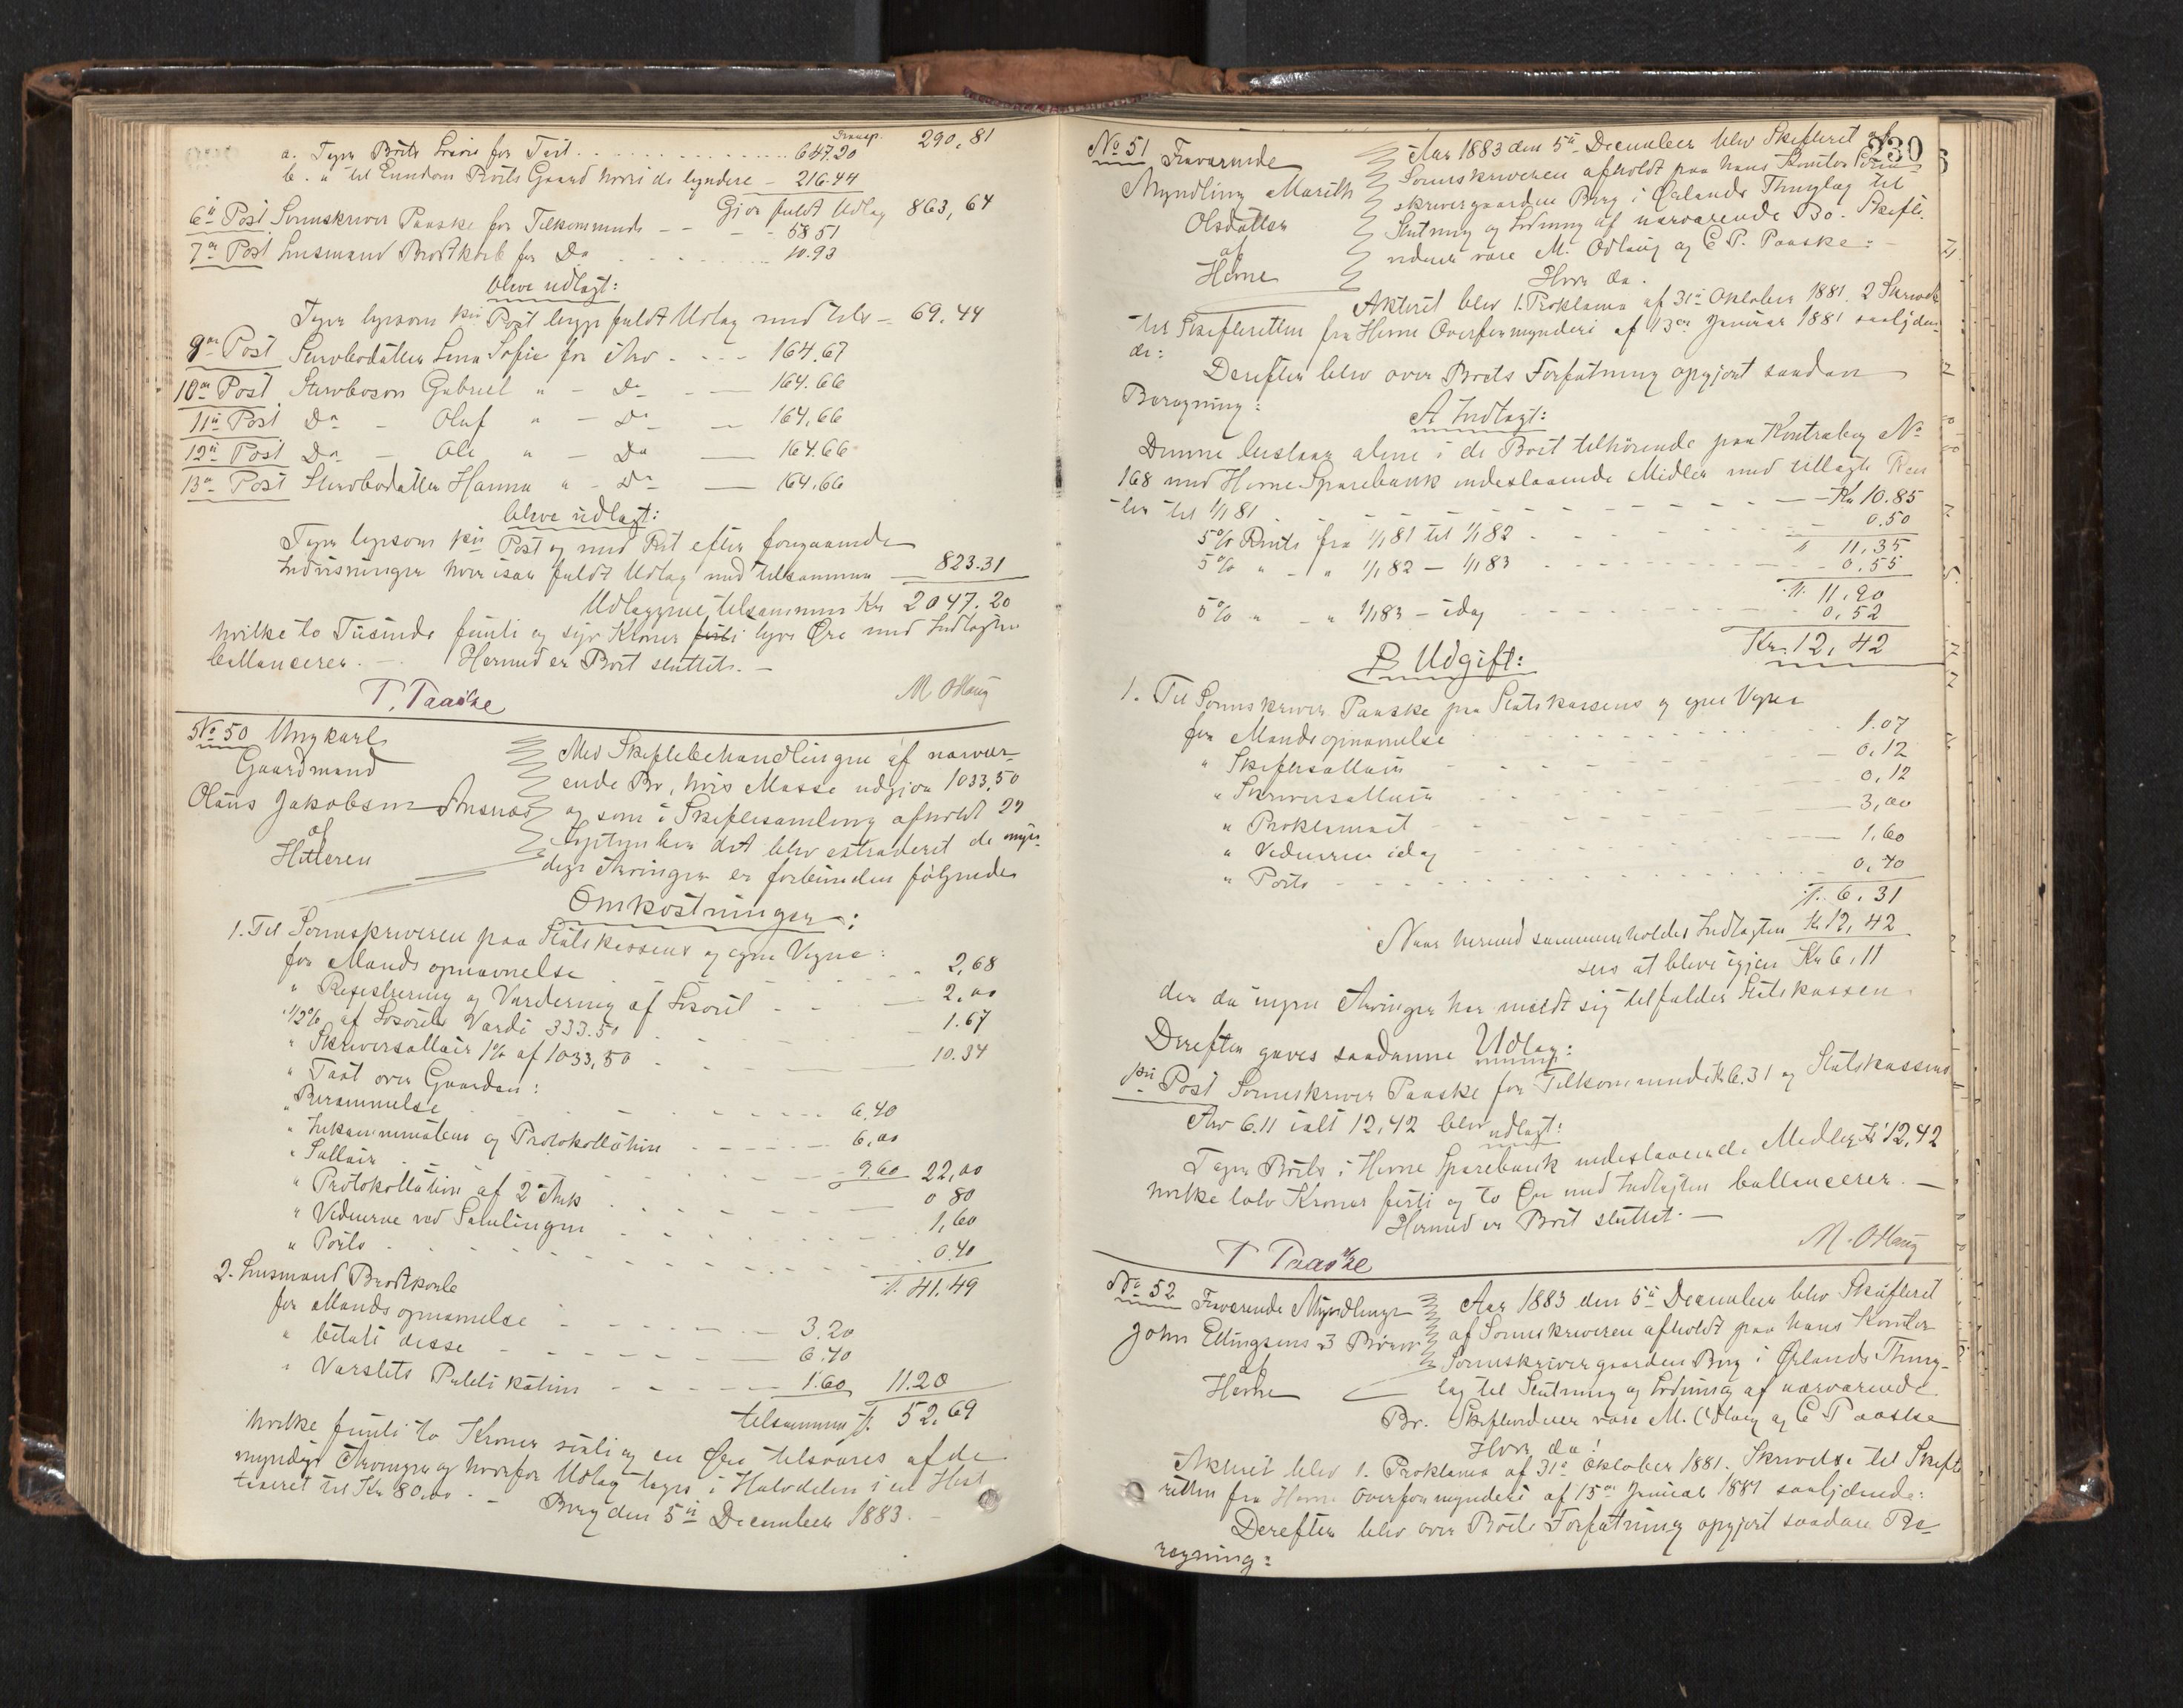 Transp. 290,81
a. Tager Boets Løsøre for Taxt 647.20
b. " til Eiendom Boets Gaard hvori de lyndere - 216.44
Gjør fuldt Udlæg 863,64
6te Post Sorenskriver Paaske for Tilkommende - - - 58 51
7de Post Lensmand Brodtkorb for Do 10.93
bleve udlagt:
Tager ligesom 1ste Post begge fuldt Udlæg med tils - 69.44
9de Post Stervbodatter Lena Sofie for Arv - - - 164.67
10de Post Stervbosøn Gabriel " - Do - - 164.66
11te Post Do - Oluf " - Do - 164,66
12te Post Do - Ole " - Do - 164.66
13de Post Stervbodatter Hanna " - Do - 164,66
bleve udlagt:
Tager ligesom 1ste Post og med Ret efter foregaaende
Indvisninger hver især fuldt Udlæg med tilsammen 823.31
Udlæggene tilsammen Kr 2047.20
hvilke to Tusinde førti og syv Kroner tyve Øre med Indtægten
ballancerer. - Hermed er Boet sluttet. -
T. Paaske M Odlaug
No 50 Ungkarl
Gaardmand
Olaus Jakobsen Ansnæs
af
Hitteren
Med Skiftebehandlingen af nærvær-
ende Bo, hvis Masse udgjør 1033,50
og som i Skiftesamling afholdt 27
September det blev extraderet de myn-
dige Arvinger er forbunden følgende
Omkostninger:
1. Til Sorenskriveren paa Statskassens og egne Vegne:
for Mands opnævnelse 2,68
" Registrering og Vurdering af Løsøret - - 2,00
" 1/2% af Løsørets Værdi 333.50 1.67
" Skriversallair 1% af 1033,50 10.34
" Taxt over Gaarden:
" Berammelse 6.40
" Inkammination og Protokollation 6,00
" Sallair 9.60 22,00
" Protokollation af 2 Ark 0 80
" Vidnerne ved Samlingen 1,60
" Porto 0.40
Kr. 41.49
2. Lensmand Brodtkorb
for Mands opnævnelse 3.20
" betalt disse 6.40
" Varslets Publikation 1.60 11.20
tilsammen Kr. 52,69
hvilke femti to Kroner sexti og ni Øre tilsvares af de
myndige Arvinger og hvorfor Udlæg tages i Halvdelen i en Hest
taxeret til Kr 80,00. - Berg den 5te December 1883. -
230
No 51 Fraværende
Myndling Marith
Olsdatter
af
Hevne
Aar 1883 den 5te December blev Skifteret af
Sorenskriveren afholdt paa hans Kontor Soren-
skrivergaarden Berg i Ørlands Thinglag til
Slutning og Lodning af nærværende Bo. Skifte-
vidner vare M. Odlaug og C P. Paaske: -
Hvor da.
Akteret blev 1. Proklama af 31te Oktober 1881. 2 Skrivelse
til Skifteretten fra Hevne Overformynderi af 13de Januar 1881 saalyden-
de:
Derefter blev over Boets Forfatning opgjort saadan
Beregning:
A Indtægt:
Denne bestaar alene i de Boet tilhørende paa Kontrabog No
168 med Hevne Sparebank indestaaende Midler med tillagte Ren
ter til 1/1 81 Kr 10.85
5% Rente fra 1/1 81 til 1/1 82 0.50
Kr 11,35
5% " - " 1/1 82 - 1/1 83 0.55
Kr. 11,90
5% " - " 1/1 83 - idag 0.52
Kr. 12,42
B Udgift:
1. Til Sorenskriver Paaske paa Statskassens og egne Vegne
for Mandsopnævnelse 1.07
" Skiftesallair 0,12
" Skriversallair 0,12
" Proklamaet 3,00
" Vidnerne idag 1.60
" Porto 0,40
Kr. 6,31
Naar hermed sammenholdes Indtægten Kr 12,42
sees at blive igjen Kr 6,11
der da ingen Arvinger har meldt sig tilfalder Statskassen.
Derefter gaves saadanne Udlæg:
1ste Post Sorenskriver Paaske for Tilkommende Kr 6.31 og Statskassens
Arv 6.11 ialt 12,42 blev udlagt:
Tager Boets i Hevne Sparebank indestaaende Midler Kr 12,42
hvilke tolv Kroner førti og to Øre med Indtægten ballancerer. -
Hermed er Boet sluttet. -
T Paaske M. Odlaug
No 52 Fraværende Myndlinge
John Ellingsens 3 Børn
af
Hevne
Aar 1883 den 5te December blev Skifteret
af Sorenskriveren afholdt paa hans Kontor
Sorenskrivergaarden Berg i Ørlands Thing-
lag til Slutning og Lodning af nærværende
Bo. Skiftevidner vare M. Odlaug og C Paaske
Hvor da:
Akteret blev 1. Proklama af 31te Oktober 1881. Skrivelse til Skifte
retten fra Hevne Overformynderi af 15de Januar 1881 saalydende:
Derefter blev over Boets Forfatning opgjort saadan Be-
regning: